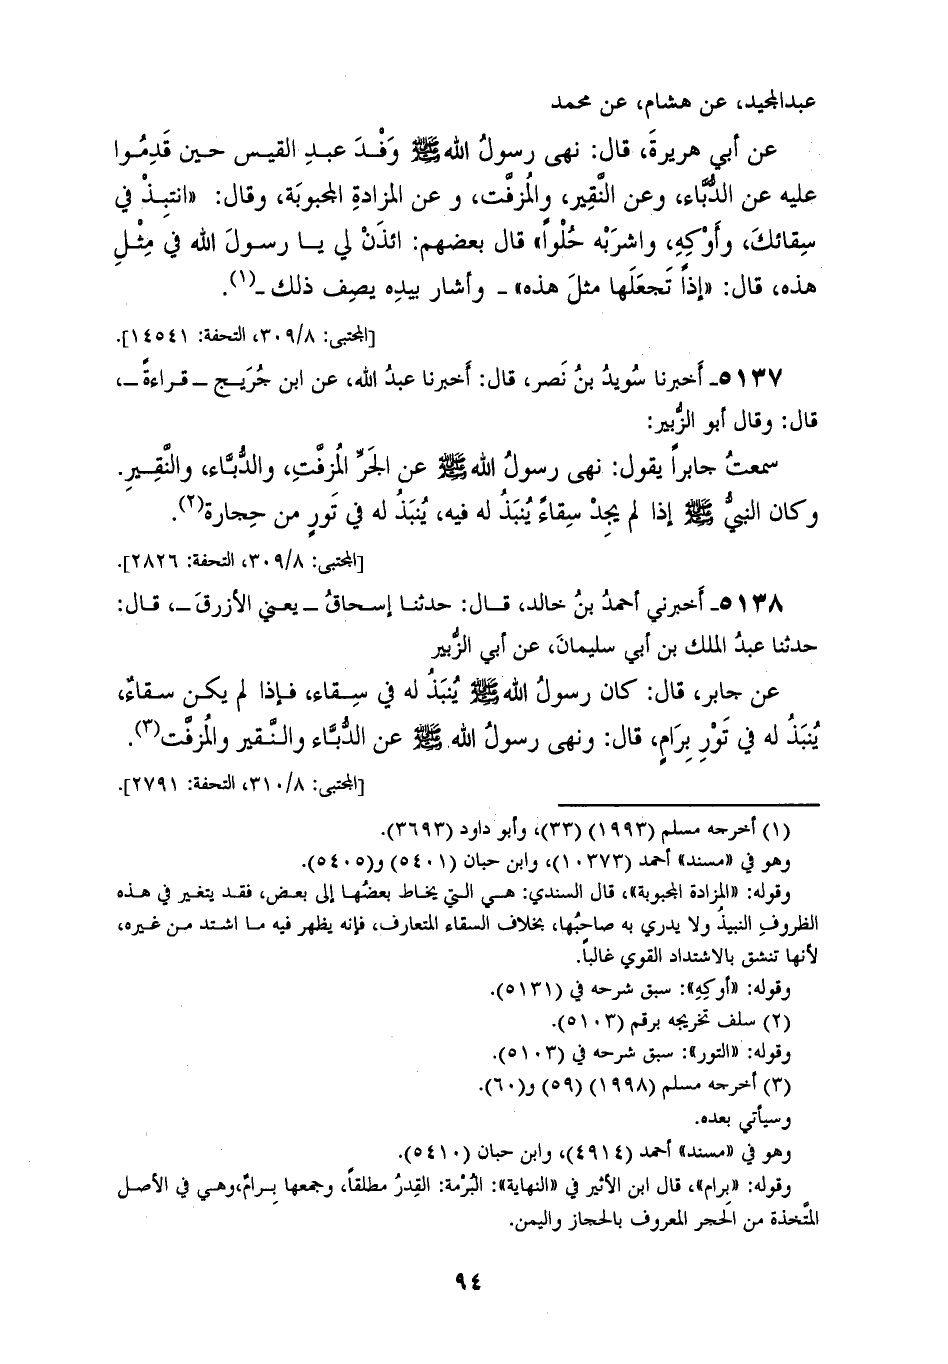 عبدالمجيد، عن هشام، عن محمد
عن أبي هريرةَ، قال: نهى رسولُ الله ﷺ وَفْدَ عبدِ القيس حين قَدِمُوا
عليه عن الدُّبَّاء، وعن النَّقِير، والمُزفَّت، و عن المزادةِ المجبوبَة، وقال: «انتبِذْ في
سِقائكَ، وأَوْكِهِ، واشرَبْه حُلْواً» قال بعضهم: ائذَنْ لي يا رسولَ الله في مِثْلِ
هذه، قال: «إذاً تَجعَلَها مثلَ هذه» - وأشار بيدِه يصِف ذلك -(١).
[المجتبى: ٣٠٩/٨، التحفة: ١٤٥٤١].
٥١٣٧- أَخبرنا سُويدُ بنُ نَصر، قال: أَخبرنا عبدُ الله، عن ابن جُرَيج - قراءةً -،
قال: وقال أبو الزُّبير:
سمعتُ جابراً يقول: نهى رسولُ الله ﷺ عن الجَرِّ المُزفَّتِ، والدُّبَّاء، والنَّقِيرِ.
وكان النبيُّ ﷺ إذا لم يجِدْ سِقاءً يُنبَذُ له فيه، يُنبَذُ له في تَورٍ من حِجارة(٢).
[المجتبى: ٣٠٩/٨، التحفة: ٢٨٢٦].
٥١٣٨- أَخبرني أحمدُ بنُ خالد، قال: حدثنا إسحاقُ - يعني الأزرقَ -، قال:
حدثنا عبدُ الملك بن أبي سليمانَ، عن أبي الزُّبير
عن جابر، قال: كان رسولُ الله ﷺ يُنبَذُ له في سِقاء، فإذا لم يكن سقاءٌ،
يُنبَذُ له في تَوْرِ بِرامٍ، قال: ونهى رسولُ الله ﷺ عن الدُّبَّاء والنَّقير والمُزفَّت(٣).
[المجتبى: ٣١٠/٨، التحفة: ٢٧٩١].
(١) أخرجه مسلم (١٩٩٣) (٣٣)، وأبو داود (٣٦٩٣).
وهو في «مسند» أحمد (١٠٣٧٣)، وابن حبان (٥٤٠١) و(٥٤٠٥).
وقوله: «المزادة المجبوبة»، قال السندي: هي التي يخاط بعضُها إلى بعض، فقد يتغير في هذه
الظروفِ النبيذُ ولا يدري به صاحبُها، بخلاف السقاء المتعارف، فإنه يظهر فيه ما اشتد من غيره،
لأنها تنشق بالاشتداد القوي غالباً.
وقوله: «أوكِهِ»: سبق شرحه في (٥١٣١).
(٢) سلف تخريجه برقم (٥١٠٣).
وقوله: «التور»: سبق شرحه في (٥١٠٣).
(٣) أخرجه مسلم (١٩٩٨) (٥٩) و(٦٠).
وسيأتي بعده.
وهو في «مسند» أحمد (٤٩١٤)، وابن حبان (٥٤١٠).
وقوله: «بِرام»، قال ابن الأثير في «النهاية»: البُرْمة: القِدرُ مطلقاً، وجمعها بِرامٌ،وهي في الأصل
المتَّخذة من الحجر المعروف بالحجاز واليمن.
٩٤